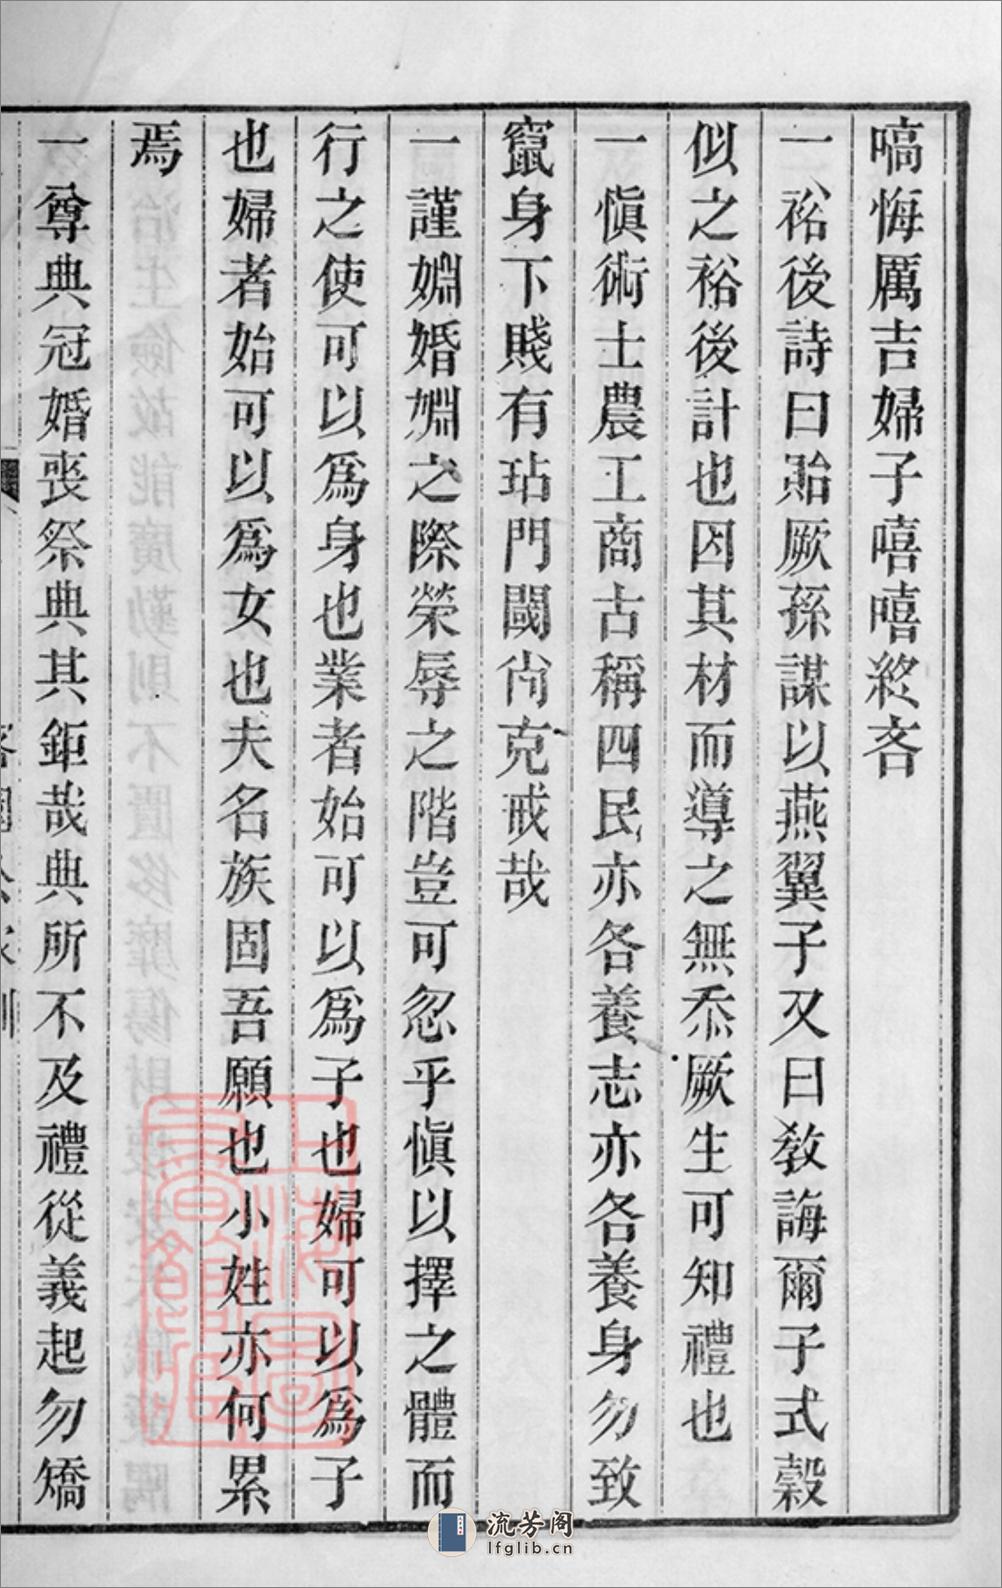 嗃悔厲吉婦子嘻嘻終吝
一裕後詩曰貽厥孫謀以燕翼子又曰敎誨爾子式穀
似之裕後計也因其材而導之無忝厥生可知禮也
一愼術士農工商古稱四民亦各養志亦各養身勿致
竄身下賤有玷門閥尙克戒哉
一謹婣婚婣之際榮辱之階豈可忽乎愼以擇之體而
行之使可以爲身也業者始可以爲子也婦可以爲子
也婦者始可以爲女也夫名族固吾願也小姓亦何累
焉
一尊典冠婚喪祭典其鉅哉典所不及禮從義起勿矯
上海圖書館藏
流芳阁
lfglib.cn